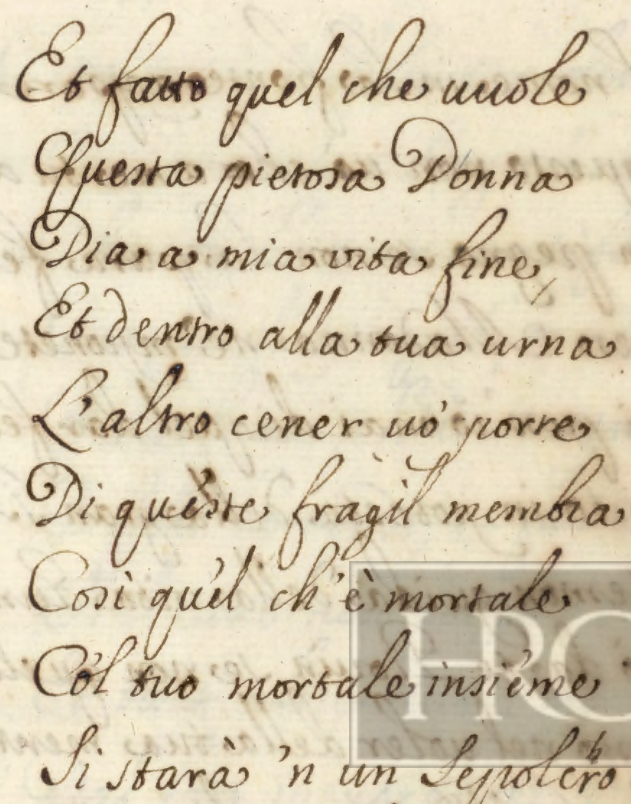 Et fatto quel che uuole
Questa pietosa Donna
Dia a mia vita fine,
Et dentro alla tua urna
L'altro cener uó porre
Di queste fragil membra
Cosi quel ch'è mortale
Col tuo mortale insieme
Si starà 'n un Sepolcro
HRC